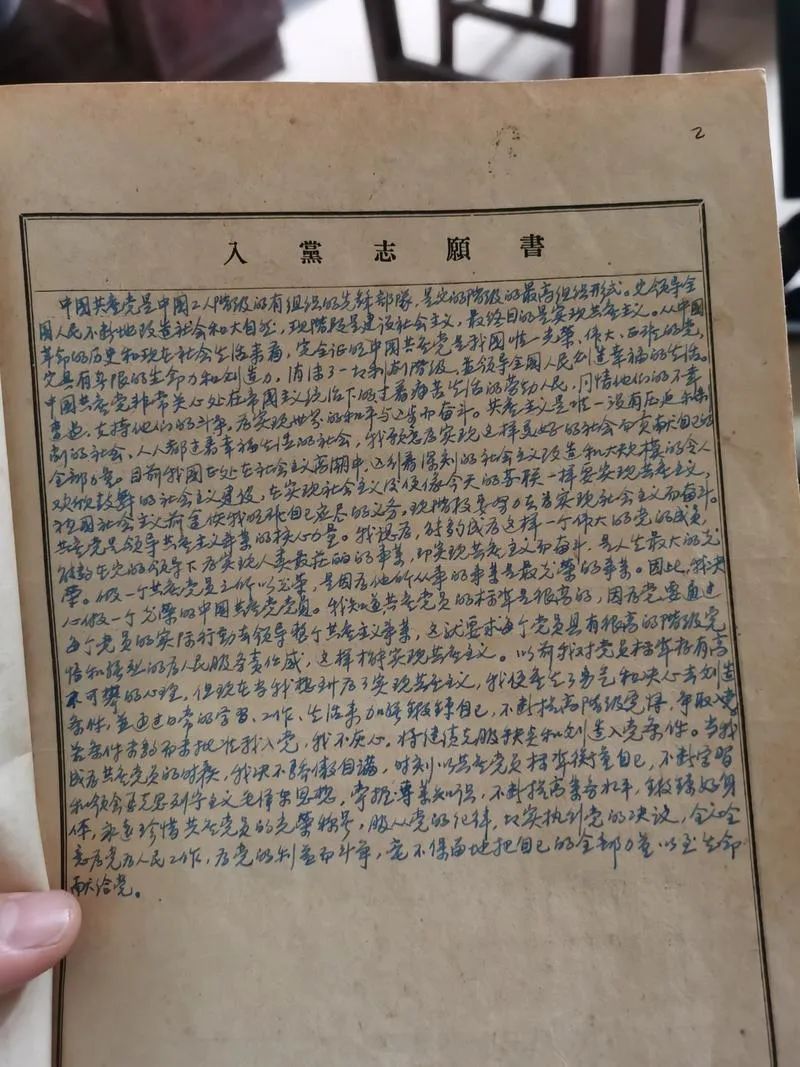 2
入黨志願書
中国共产党是中国工人阶级的有组织的先鋒部隊，是它的阶级的最高组织形式。它领导全
国人民不断地改造社会和大自然，现阶段是建设社会主义，最终目的是实现共产主义。从中国
革命的历史和现在社会生活来看，完全证明中国共产党是我国唯一光荣、伟大、正确的党，
它具有无限的生命力和创造力，消滅了一切剥削阶级，並领导全国人民创造幸福的生活。
中国共产党非常关心处在帝国主义统治下的过着痛苦生活的劳动人民，同情他们的不幸
遭遇，支持他们的斗争，為实现世界的和平与进步而奋斗。共产主义是唯一没有压迫和剥
削的社会，人人都过着幸福生活的社会，我願意為实现这样美好的社会而贡献自己的
全部力量。目前我国正处在社会主义高潮中，进行着深刻的社会主义改造和大规模的令人
欢欣鼓舞的社会主义建设，在实现社会主义后便像今天的苏联一样要实现共产主义，
祖国社会主义前途使我的担自己应尽的义务，现阶段要努力去為实现社会主义而奋斗。
共产党是领导共产主义事業的核心力量。我认為，能够成為这样一个伟大的党的成员，
能够在党的领导下為实现人类最壮丽的事業，即实现共产主义而奋斗，是人生最大的光
荣。做一个共产党员之所以光荣，是因為他所从事的事業是最光荣的事業。因此，我决
心做一个光荣的中国共产党党员。我知道共产党员的标準是很高的，因為党要通过
每个党员的实际行动去领导整个共产主义事業，这就要求每个党员具有很高的阶级觉
悟和强烈的為人民服务责任感，这样才能实现共产主义。以前我对党员标準存有高
不可攀的心理，但现在当我想到為了实现共产主义，我便產生了勇气和决心去创造
条件，並通过日常的学习、工作、生活来加强鍛鍊自己，不断提高阶级觉悟，争取入党。
若条件不够而未批准我入党，我不灰心，将继续克服缺点和创造入党条件。当我
成為共产党员的时候，我决不骄傲自满，时刻以共产党员标準衡量自己，不断学习
和领会马克思列宁主义毛泽东思想，掌握專業知识，不断提高業务水平，鍛鍊好身
体，永远珍惜共产党员的光荣称号，服从党的纪律，切实执行党的决议，全心全
意為党為人民工作，為党的利益而斗争，毫不保留地把自己的全部力量以至生命
献给党。